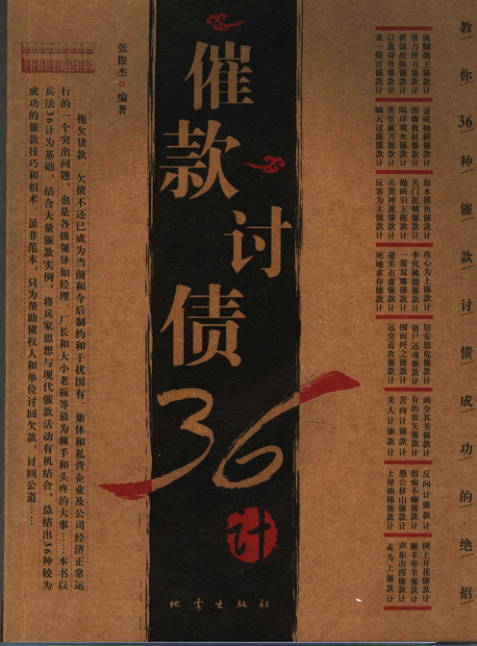 教你36种催款讨债成功的绝招
擒贼擒王催款计
借力使力催款计
欲擒故纵催款计
以逸待劳催款计
杀一儆百催款计
釜底抽薪催款计
围魏救赵催款计
隔岸观火催款计
笑里藏刀催款计
瞒天过海催款计
混水摸鱼催款计
关门捉贼催款计
抛砖引玉催款计
兵贵神速催款计
反客为主催款计
攻心为上催款计
李代桃僵催款计
一箭双雕催款计
避实击虚催款计
死地求存催款计
居安思危催款计
借尸还魂催款计
围而歼之催款计
远交近攻催款计
两全其美催款计
有的放矢催款计
苦肉计催款计
美人计催款计
反间计催款计
假痴不癫催款计
愚公移山催款计
上屋抽梯催款计
树上开花催款计
顺手牵羊催款计
声东击西催款计
走为上催款计
催款讨债36计
张俊杰◎编著
拖欠货款、欠债不还已成为当前和今后制约和干扰国有、集体和私营企业及公司经济正常运
行的一个突出问题，也是各级领导如经理、厂长和大小老板等最为棘手和头疼的大事……本书以
兵法36计为基础，结合大量催款实例，将兵家思想与现代催款活动有机结合，总结出36种较为
成功的催款技巧和招术。虽非范本，只为帮助债权人和单位讨回欠款，讨回公道……
地震出版社